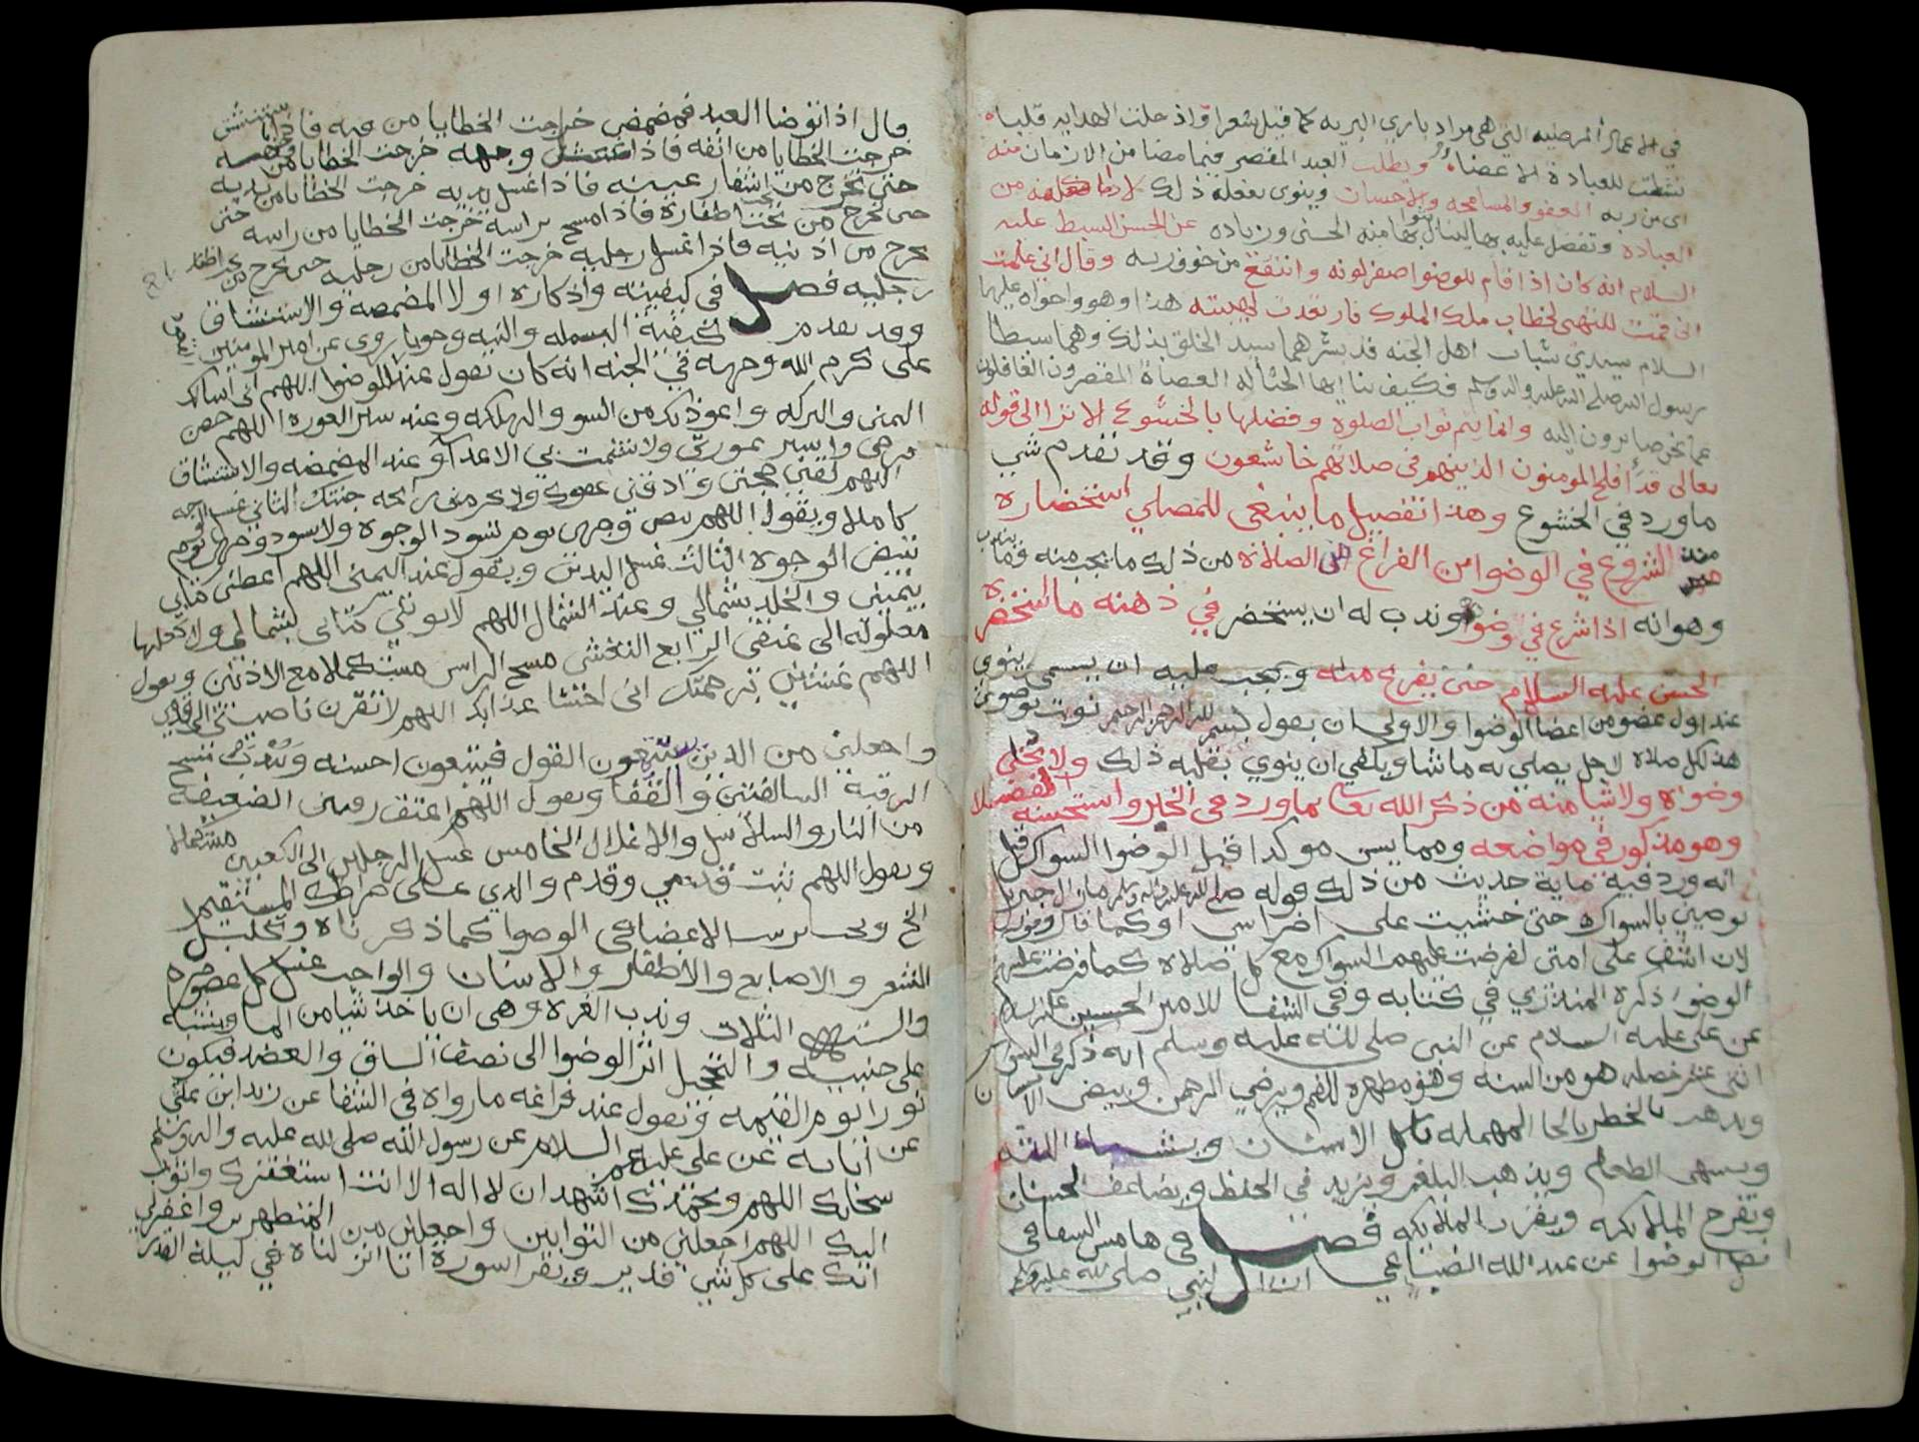 في الاعمال المرضيه التي هي مراد باري البريه كما قيل شعرا واذ حلت الهدايه قلبا
نشطت للعبادة الاعضاء ويطلب العبد المقصر فيما مضا من الازمان منه
اى من ربه العفو والمسامحه والاحسان وينوى بفعله ذلك
العباده وتفضل عليه بها لينال بها منه الحسنى وزياده عن الحسن السبط عليه
السلام انه كان اذا قام للوضوا اصفر لونه وانتقع من خوف ربه وقال اني علمت
اني قمت للتهي لخطاب ملك الملوك فارتعدت لهيبته هذا وهو واخواه عليهما
السلام سيدي شباب اهل الجنه قد بشرهما سيد الخلق بذلك وهما سبطا
رسول الله صلى الله عليه واله وسلم فكيف بنا ايها العصاة المقصرون الغافلون
عما نحن صايرون اليه وانما يتم ثواب الصلوه وفضلها بالخشوع الا ترا الى قوله
تعالى قد أفلح المومنون الذين هم فى صلاتهم خاشعون وقد تقدم شي
ما ورد في الخشوع وهذا تفصيل ما ينبغى للمصلي استحضاره
منذ الشروع في الوضوا من الفراغ الصلاة من ذلك ما يجب منه وما يندب
وهو انه اذا شرع في وضوا وندب له ان يستحضر في ذهنه ما استحضره
الحسن عليه السلام حتى يفرغ منه ويجب عليه ان يسمى وينوي
عند اول عضو من اعضا الوضوا والاولى ان يقول بسم الله الرحمن الرحيم نويت بوضوي
هذا لكل صلاه لاجل يصلي به ما شا ويكفي ان ينوي بقلبه ذلك ولا يخلي
وضواه ولا شيا منه من ذكر الله تعالى بما ورد فى الخبر واستحسنه الفضلا
وهو مذكور في مواضعه ومما يسن موكدا قبل الوضوا السواك قيل
انه ورد فيه ماية حديث من ذلك قوله صلى الله عليه واله وسلم ما زال جبريل
يوصيني بالسواك حتى خشيت على اضراسي او كما قال وقوله
لان اشق على امتى لفرضت عليهم السواك مع كل صلاه كما فرضت عليهم
الوضوا ذكره المنذري في كتابه وفي الشفا للامير الحسين عليه السلام
عن على عليه السلام عن النبي صلى الله عليه وسلم انه ذكر في السواك
اثنى عشر خصله هو من السنه وهو مطهره للفم ويرضي الرحمن ويبيض الاسنان
ويذهب بالخطر بالحا المهمله الاسنان ويشد اللثه
ويشهى الطعام ويذهب البلغم ويزيد في الحفظ ويضاعف الحسنات
وتفرح الملايكه ويقرب الملايكه فصل في هامش الشفا في
فضل الوضوا عن عبد الله الصنابحي ان النبي صلى الله عليه وسلم
قال اذا توضا العبد فمضمض خرجت الخطايا من فيه فاذا استنشق
خرجت الخطايا من انفه فاذا غسل وجهه خرجت الخطايا من وجهه
حتى تخرج من اشفار عينيه فاذا غسل يديه خرجت الخطايا من يديه
حتى تخرج من تحت اظفاره فاذا مسح براسه خرجت الخطايا من راسه حتى
تخرج من اذنيه فاذا غسل رجليه خرجت الخطايا من رجليه حتى تخرج من تحت اظفار
رجليه فصل في كيفيته واذكاره اولا المضمضه والاستنشاق
وقد تقدم كيفية البسمله والنيه وجوبا روى عن امير المومنين
على كرم الله وجهه في الجنه انه كان يقول عند الوضوا اللهم انى اسالك
اليمنى والبركه واعوذ بك من السو والهلكه وعند ستر العوره اللهم حصن
فرجي واستر عورتى ولا تشمت بي الاعداء وعند المضمضه والاستنشاق
اللهم لقني حجتى واذقني عفوك ولا تحرمنى رائحه جنتك الثاني غسل الوجه
كاملا ويقول اللهم بيض وجهى يوم تسود الوجوه ولا تسود وجهى يوم
تبيض الوجوه الثالث غسل اليدين ويقول عند اليمنى اللهم اعطنى كتابي
بيمينى والخلد بشمالي وعند الشمال اللهم لا توتني كتابى بشمالي ولا تجعلها
مغلوله الى عنقى الرابع مسح الراس مستكملا مع الاذنين ويقول
اللهم غشني برحمتك انى اخشا عذابك اللهم لا تقرن ناصيتى الى قدمي
واجعلني من الذين يستمعون القول فيتبعون احسنه ويندب مسح
الرقبة السالفتين والقفا ويقول اللهم اعتق رقبتى الضعيفه
من النار والسلاسل والاغلال الخامس غسل الرجلين الى الكعبين مستكملا
ويقول اللهم ثبت قدمي وقدم والدي على صراطك المستقيم
الخ ويجب ترتيب الاعضا في الوضوا كما ذكرناه وتخليل
الشعر والاصابع والاظفار والاسنان والواجب غسل كل عضو مره
والسنه الثلاث وندب الغره وهى ان ياخذ شيا من الما ويشنه
على جبينه والتحجيل اثر الوضوا الى نصف الساق والعضد فيكون
نورا يوم القيمه ويقول عند فراغه ما رواه في الشفا عن زيد ابن على
عن ابايه عن على عليهم السلام عن رسول الله صلى الله عليه واله وسلم
سبحانك اللهم وبحمدك اشهد ان لا اله الا انت استغفرك واتوب
اليك اللهم اجعلني من التوابين واجعلني من المتطهرين واغفر لي
انك على كل شي قدير ويقرا سورة انا انزلناه في ليلة القدر